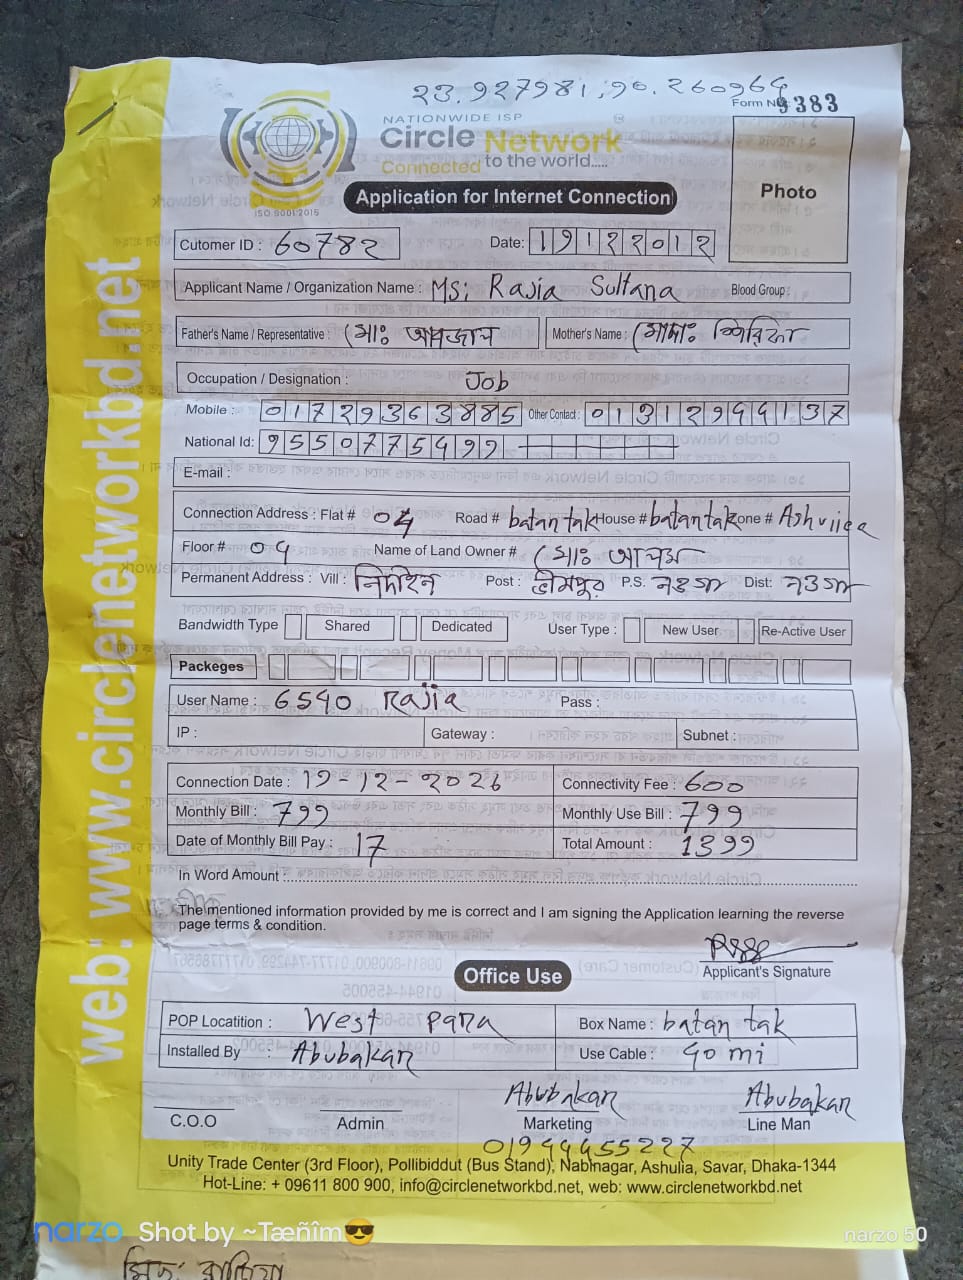 23.927981,90.260964
Form No 9383
NATIONWIDE ISP
Circle Network
Connected to the world.....
ISO 9001:2015
Application for Internet Connection
Photo
Cutomer ID : 60782 Date: 19122012
Applicant Name / Organization Name : MS; Rajia Sultana Blood Group:
Father's Name / Representative : মোঃ আমজাদ Mother's Name : মোছাঃ শিরিফা
Occupation / Designation : Job
Mobile : 01729363885 Other Contact : 01312994137
National Id: 9550775499
E-mail :
Connection Address : Flat # 04 Road # batan tak House # batan tak Zone #
Floor # 04 Name of Land Owner # মোঃ আলম
Permanent Address : Vill : Post : ভীমপুর P.S. নওগাঁ Dist: নওগাঁ
Bandwidth Type Shared Dedicated User Type : New User Re-Active User
Packeges
User Name : 6540 Rajia Pass :
IP : Gateway : Subnet :
Connection Date : 19-12-2026 Connectivity Fee : 600
Monthly Bill : 799 Monthly Use Bill : 799
Date of Monthly Bill Pay : 17 Total Amount : 1399
in Word Amount :
The mentioned information provided by me is correct and I am signing the Application learning the reverse
page terms & condition.
Applicant's Signature
Office Use
POP Locatition : West para Box Name : batan tak
Installed By : Abubakar Use Cable : 90 mi
Abubakar Abubakar
C.O.O Admin Marketing Line Man
01944455227
Unity Trade Center (3rd Floor), Pollibiddut (Bus Stand), Nabinagar, Ashulia, Savar, Dhaka-1344
Hot-Line: + 09611 800 900, info@circlenetworkbd.net, web: www.circlenetworkbd.net
web: www.circlenetworkbd.net
narzo Shot by ~Tæñîm😎 narzo 50